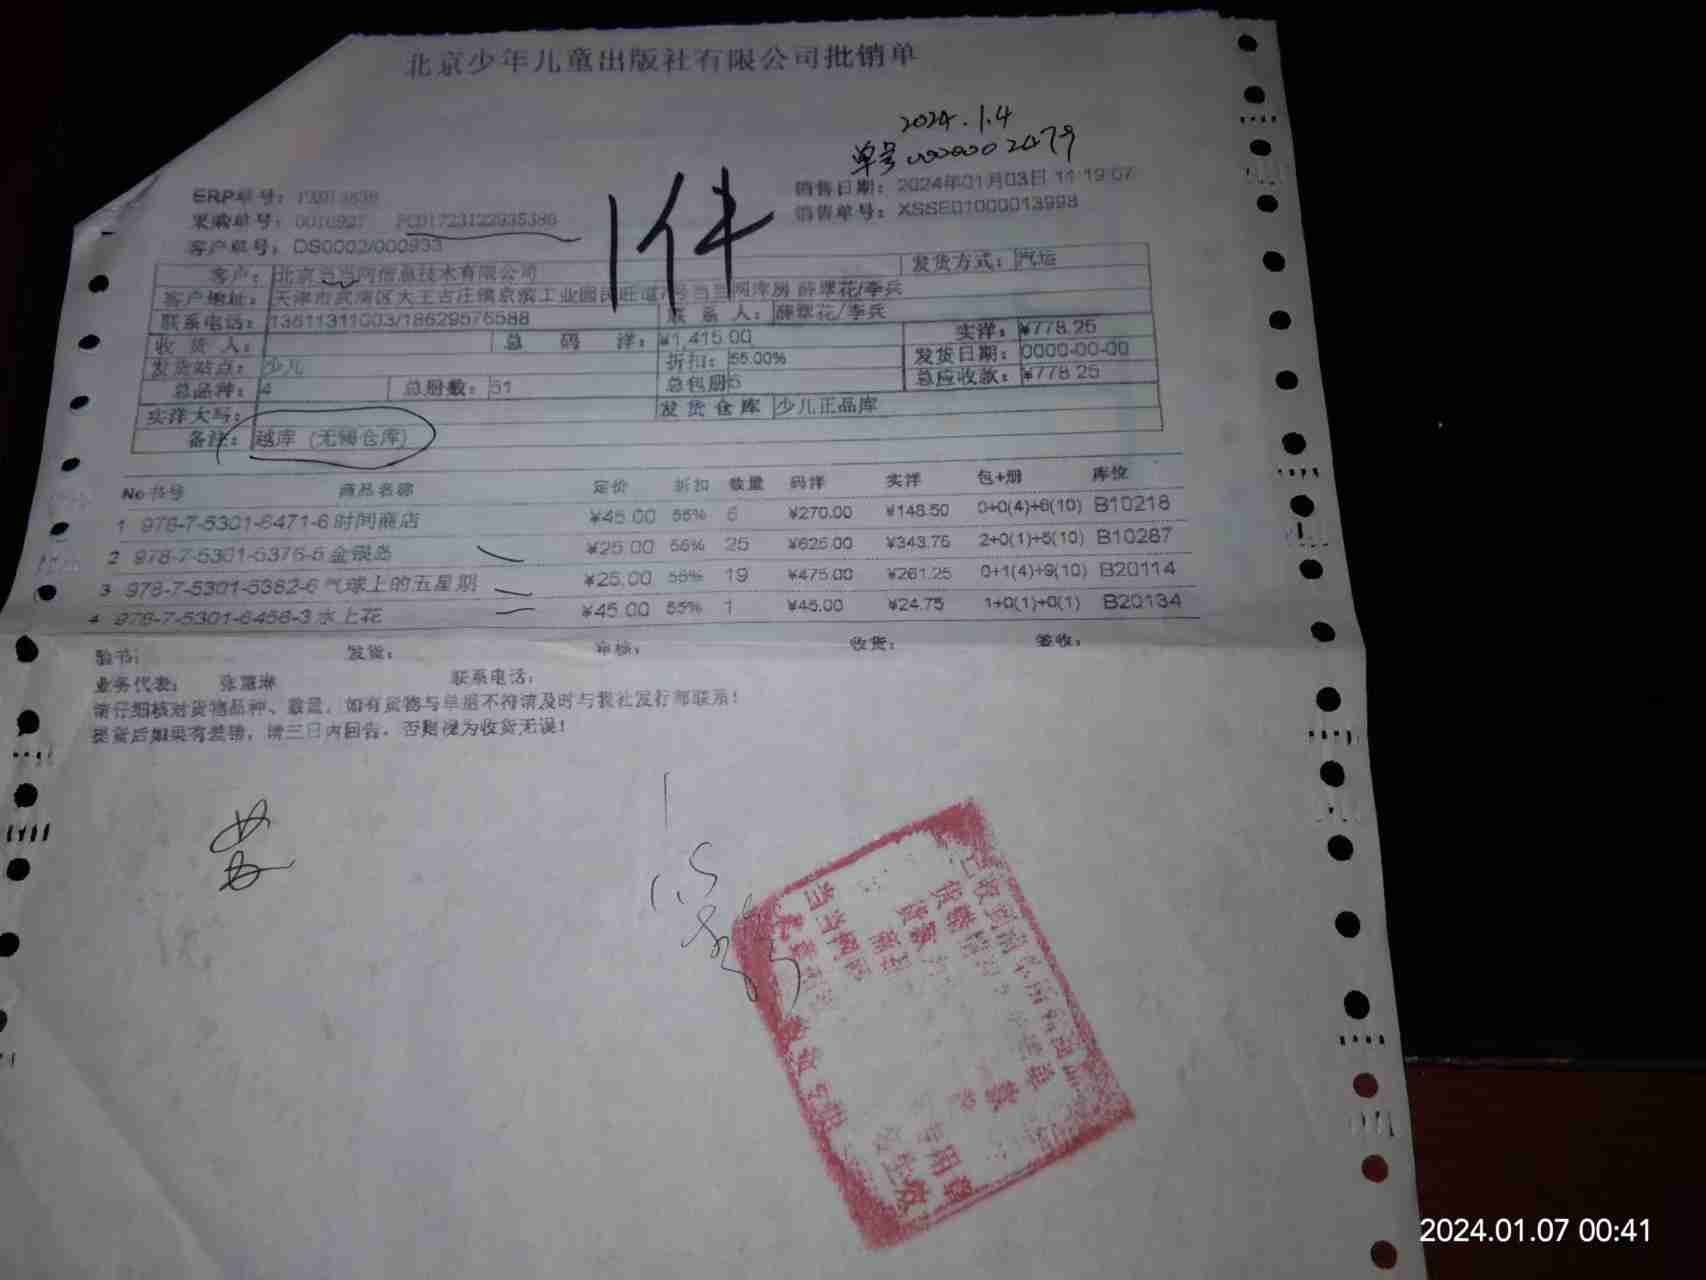 北京少年儿童出版社有限公司批销单
2024.1.4
单号0000002479
1件
ERP单号：
销售日期：2024年01月03日 11:19:07
采购单号：0016927 PCD1723122935386
销售单号：XSSE01000013998
客户单号：DS0002/000933
客户：北京当当网信息技术有限公司 发货方式：汽运
客户地址：天津市武清区大王古庄镇京滨工业园民旺道 号当当网库房 薛翠花/李兵
联系电话：13611311003/18629576588 联系人：薛翠花/李兵
收货人： 总码洋：¥1,415.00 实洋：¥778.25
发货站点：少儿 折扣：55.00% 发货日期：0000-00-00
总品种：4 总册数：51 总包册5 总应收款：¥778.25
实洋大写： 发货仓库 少儿正品库
备注：越库（无锡仓库）
No 书号 商品名称 定价 折扣 数量 码洋 实洋 包+册 库位
1 978-7-5301-6471-6 时间商店 ¥45.00 55% 6 ¥270.00 ¥148.50 0+0(4)+6(10) B10218
2 978-7-5301-5376-5 金银岛 ¥25.00 55% 25 ¥625.00 ¥343.75 2+0(1)+5(10) B10287
3 978-7-5301-5382-6 气球上的五星期 ¥25.00 55% 19 ¥475.00 ¥261.25 0+1(4)+9(10) B20114
4 978-7-5301-6458-3 水上花 ¥45.00 55% 1 ¥45.00 ¥24.75 1+0(1)+0(1) B20134
验书： 发货： 审核： 收货： 签收：
业务代表： 张慧琳 联系电话：
请仔细核对货物品种、数量，如有货物与单据不符请及时与我社发行部联系！
提货后如果有差错，请三日内回告，否则视为收货无误！
2024.01.07 00:41